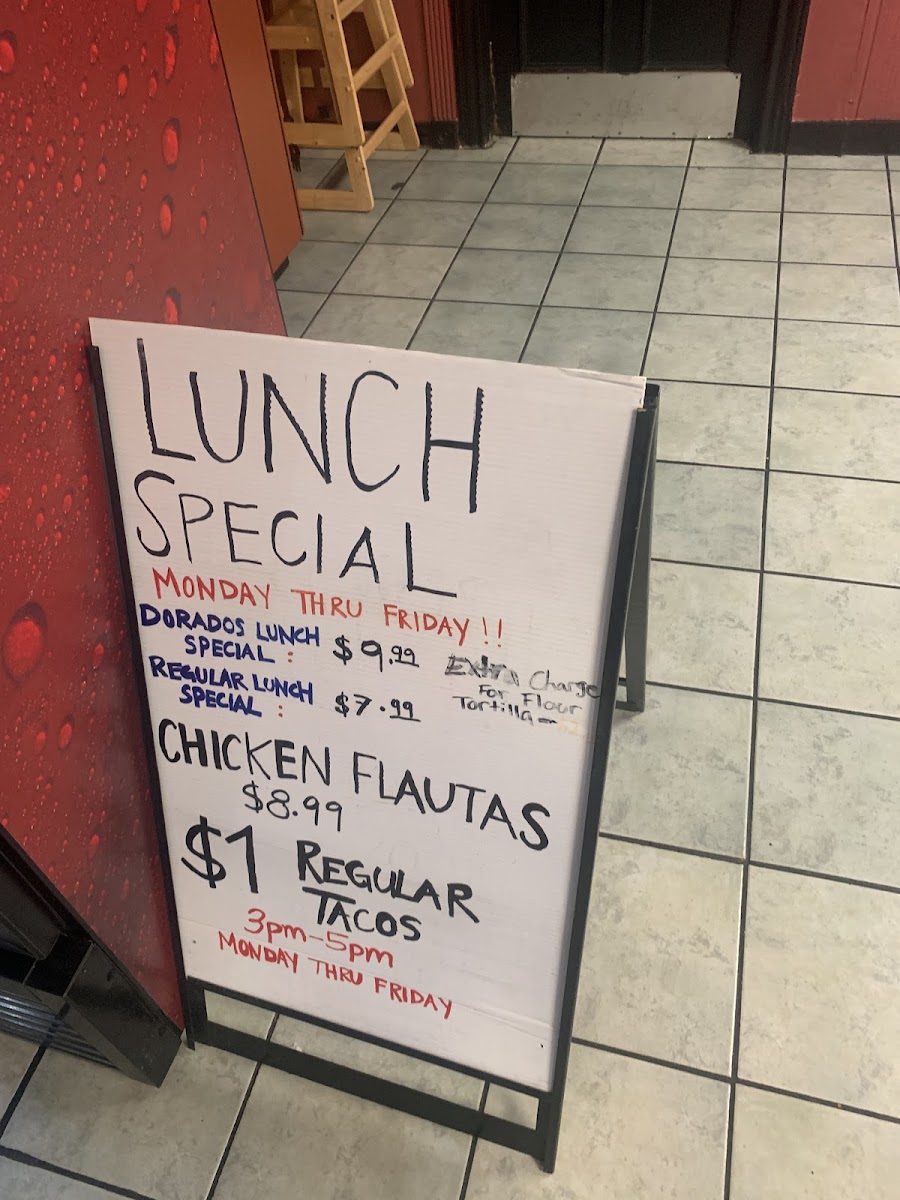 LUNCH
SPECIAL
MONDAY THRU FRIDAY !!
DORADOS LUNCH
SPECIAL : $9.99
REGULAR LUNCH
SPECIAL : $7.99
Extra Charge
For Flour
Tortilla
CHICKEN FLAUTAS
$8.99
$1 REGULAR
TACOS
3pm-5pm
MONDAY THRU FRIDAY